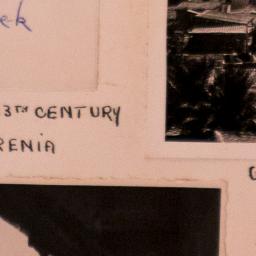 ek
3TH CENTURY
RENIA